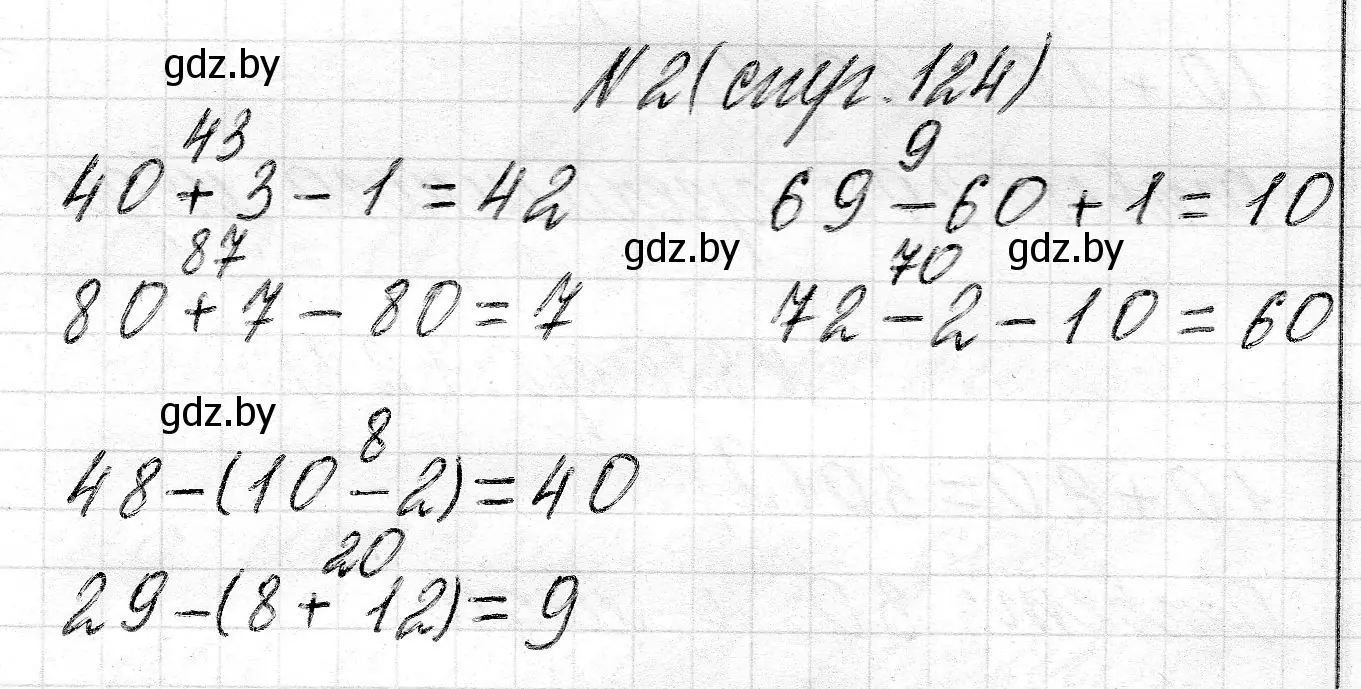 gdz.by
№ 2 (стр. 124)
43 9
40 + 3 - 1 = 42 69 - 60 + 1 = 10
87 gdz.by 70 gdz.by
80 + 7 - 80 = 7 72 - 2 - 10 = 60
gdz.by 8
48 - (10 - 2) = 40
20
29 - (8 + 12) = 9